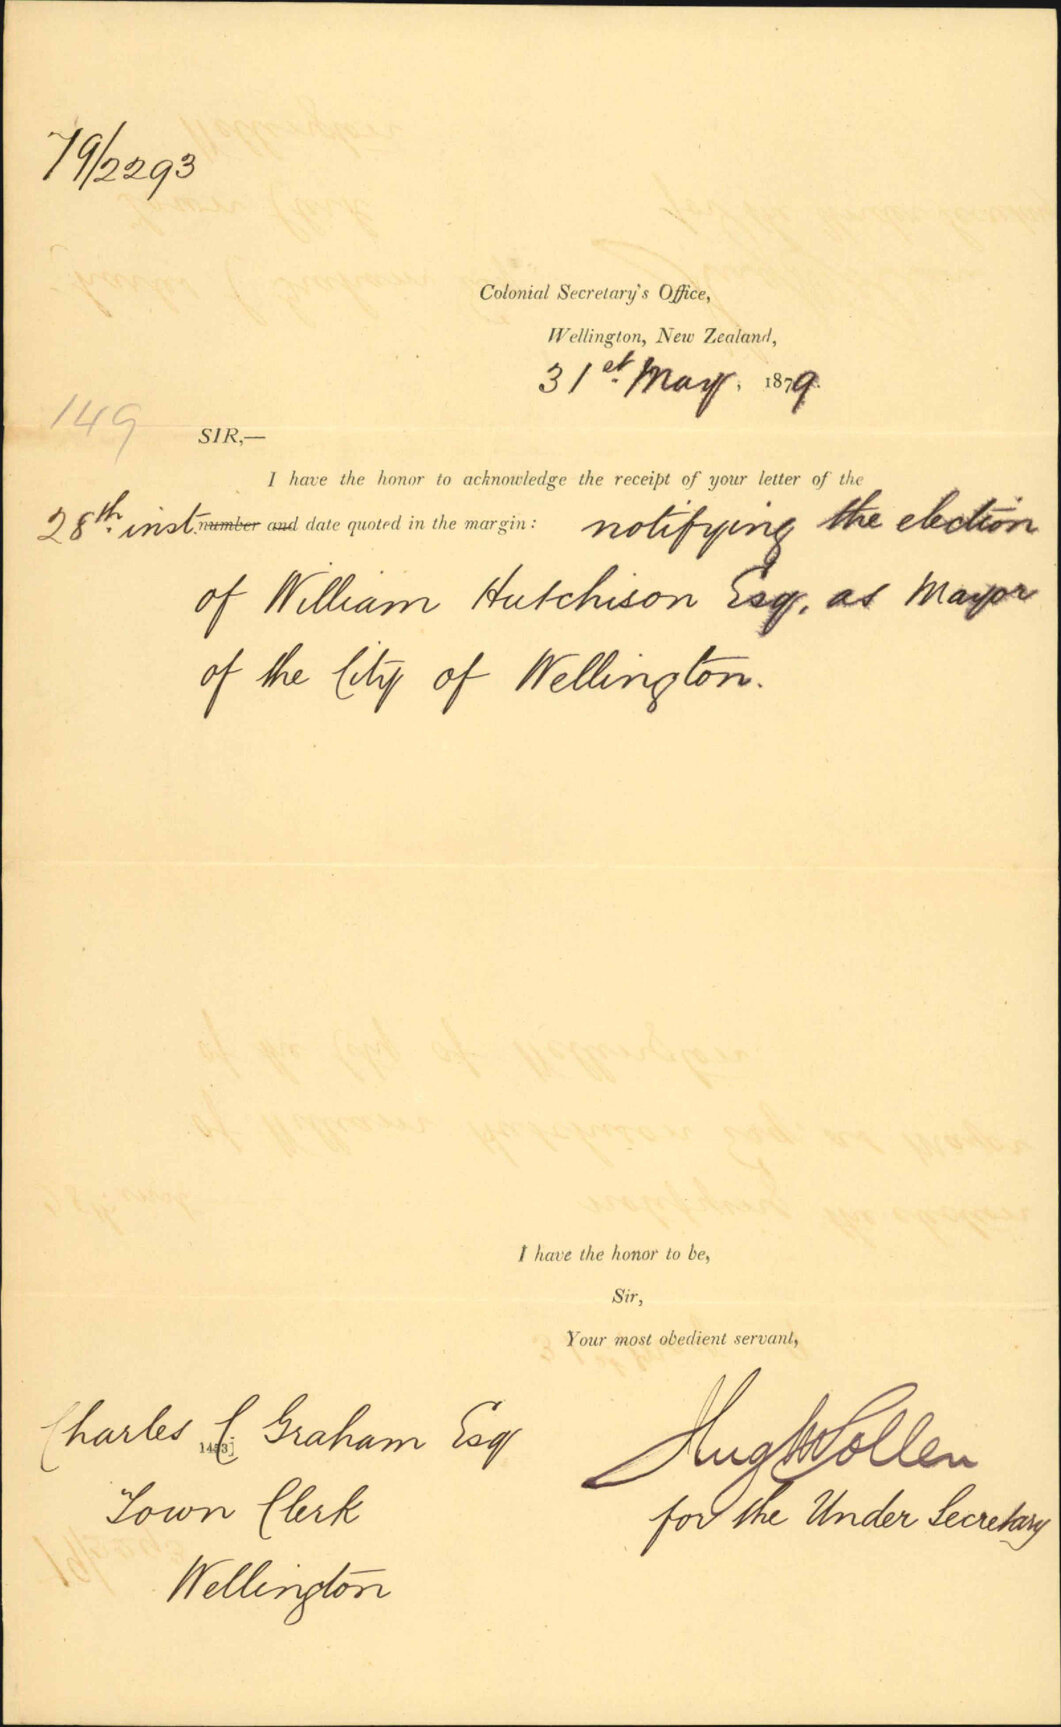 79/2293
Colonial Secretary's Office,
Wellington, New Zealand,
31st May, 1879.
149
SIR,—
I have the honor to acknowledge the receipt of your letter of the
28th inst. number and date quoted in the margin: notifying the election
of William Hutchison Esq. as Mayor
of the City of Wellington.
I have the honor to be,
Sir,
Your most obedient servant,
Charles C Graham Esq
Hugh Pollen
for the Under Secretary
Town Clerk
Wellington